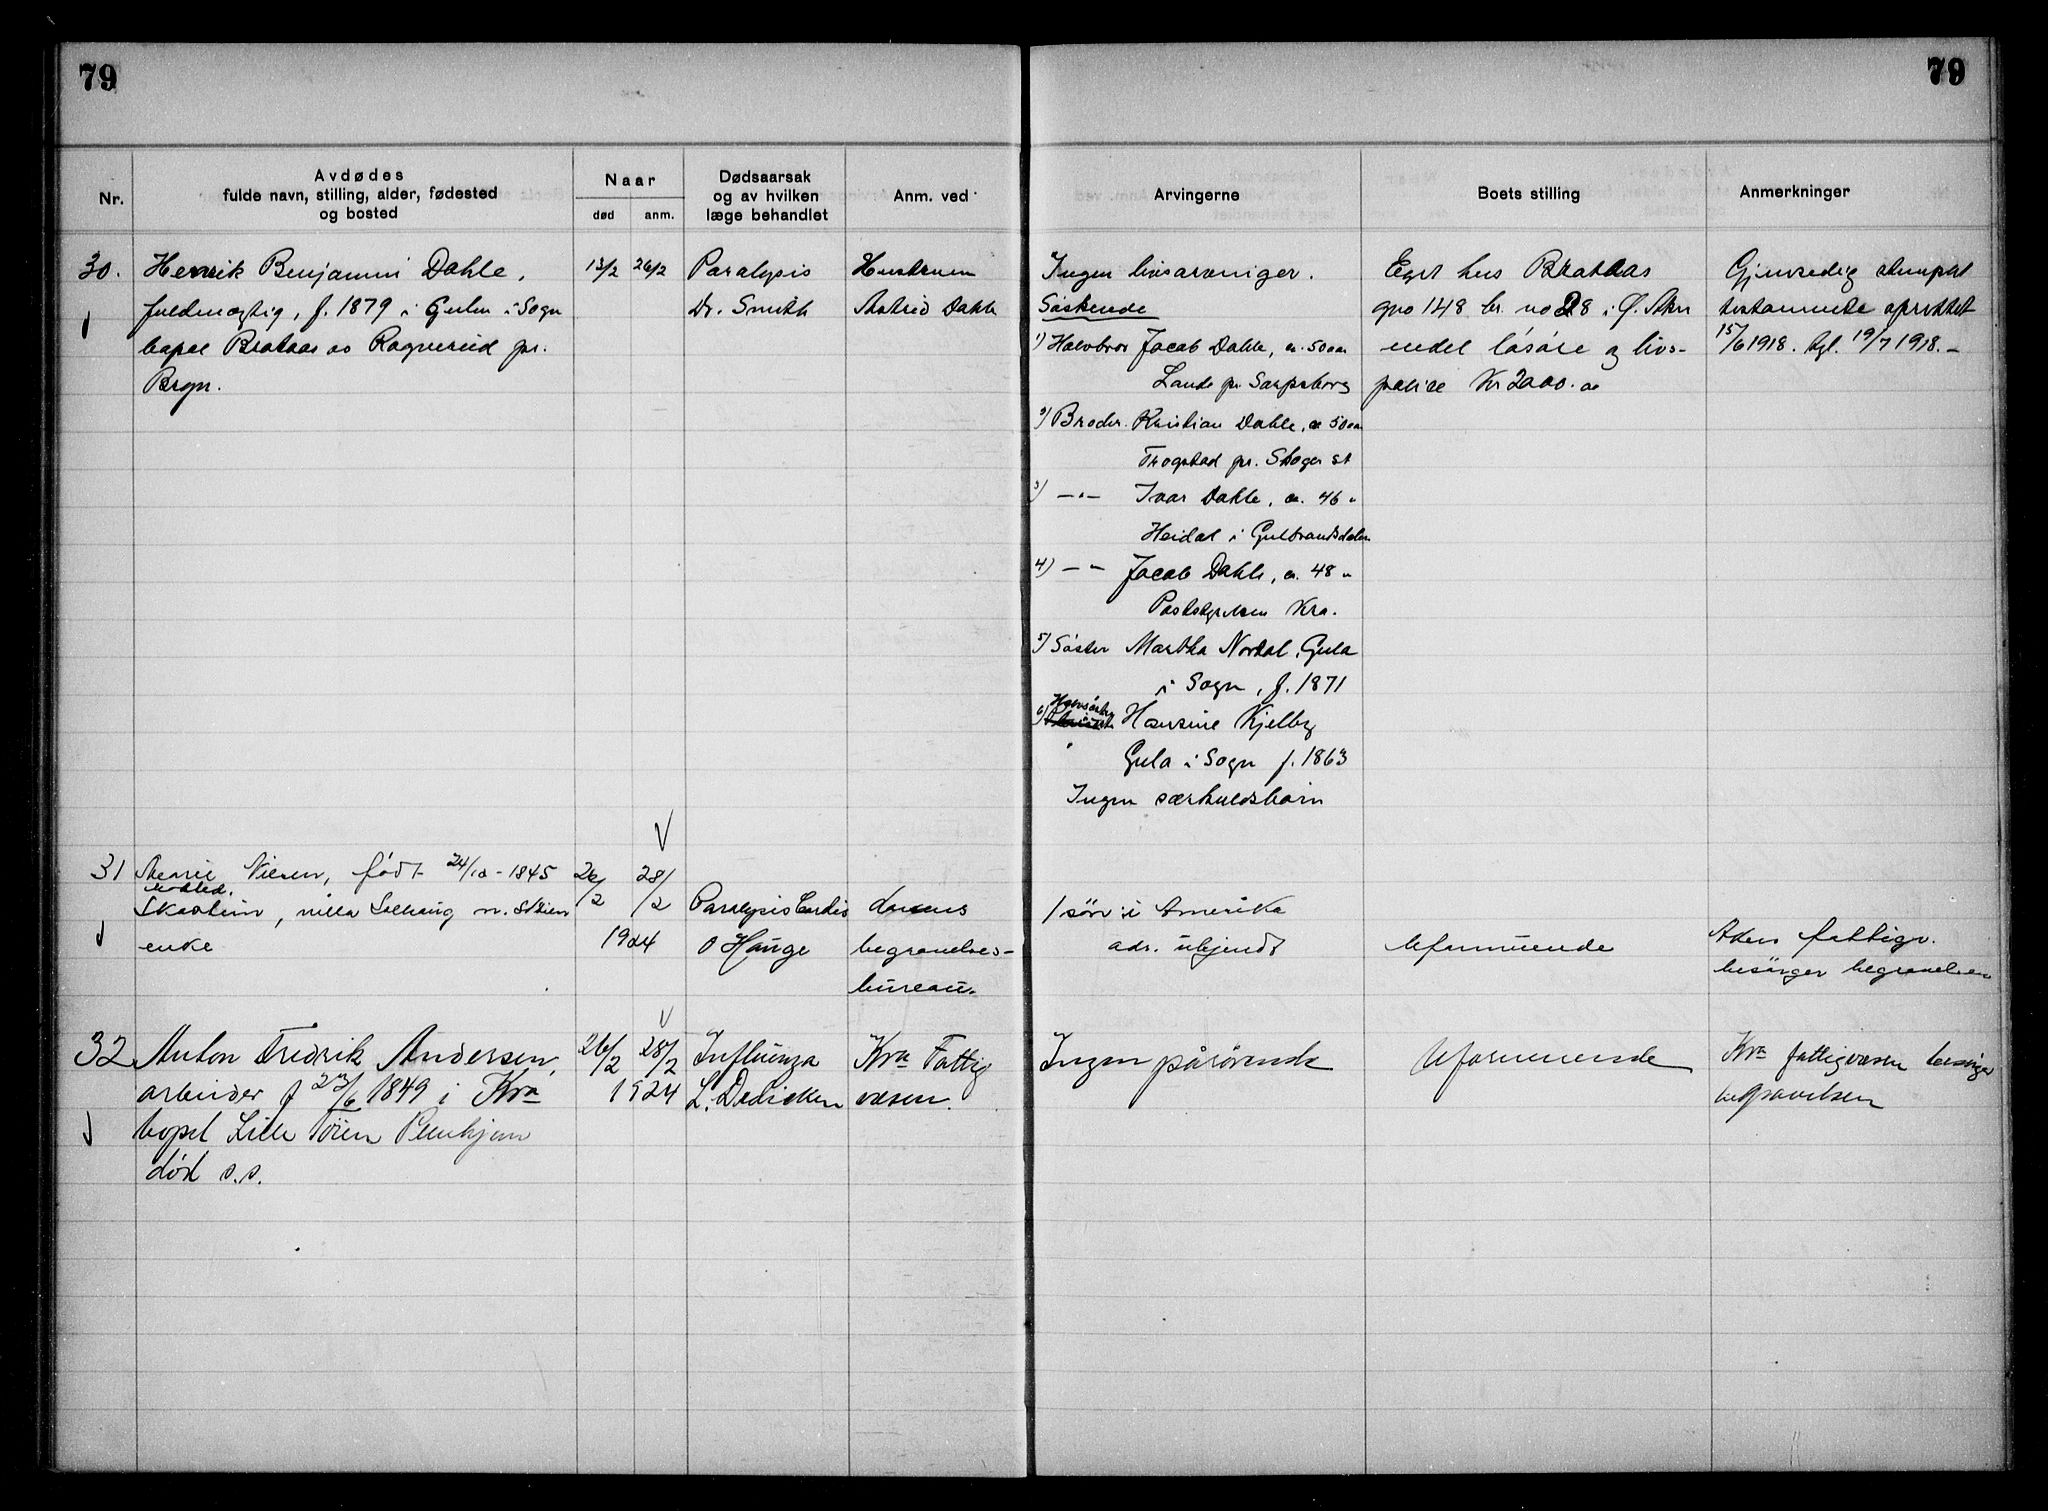 79
79
Nr.
Avdødes
fulde navn, stilling, alder, fødested
og bosted
Naar
død
anm.
Dødsaarsak
og av hvilken
læge behandlet
Anm. ved
Arvingerne
Boets stilling
Anmerkninger
30.
Henrik Benjamin Dahle,
fuldmægtig, f. 1879 i Gulen i Sogn
bopæl Brataas av Ragnerud pr.
Brgn.
13/2 26/2
Paralysis
Dr. Smith
Hustruen
Astrid Dahle
Ingen livsarvinger.
Søskende
1) Halvbror Jacob Dahle, ca. 50 aar
Lande pr. Sarpsborg
2) Broder. Kristian Dahle, ca 50 aar
Trøgstad pr. Skoger st
3) —"— Ivar Dahle, ca. 46 "
Heidal i Gulbrandsdalen
4) —"— Jacob Dahle, ca. 48 "
Poststyrelsen Kra.
5) Søster Martha Nordal, Gula
i Sogn, f. 1871
6) Halvsøster Hansine Kjelby
Gula i Sogn f. 1863
Ingen særkuldsbørn
Eget hus Brataas
gno 148 br. no 28 i Ø. Aker
endel løsøre og livs-
police Kr 2000.00
Gjensidig
testamente oprettet
15/6 1918. tgl. 19/7 1918.-
31
Nilsen, født 24/10-1845
bosted.
villa Solhaug
enke
26/2 28/2
1924
Paralysis Cordis
O Hauge
begravelses-
bureau.
1 søn i Amerika
adr. ukjendt
Uformuende
Akers fattigv.
besørger begravelsen
32
Anton Fredrik Andersen,
arbeider f 23/6 1849 i Kra
bopel Lille Tøien Pleiehjem
død s.s.
26/2 28/2
1924
Influenza
L. Dedicken
Kra Fattig
væsen.
Ingen pårørende
Uformuende
Kra fattigvæsen besørger
begravelsen